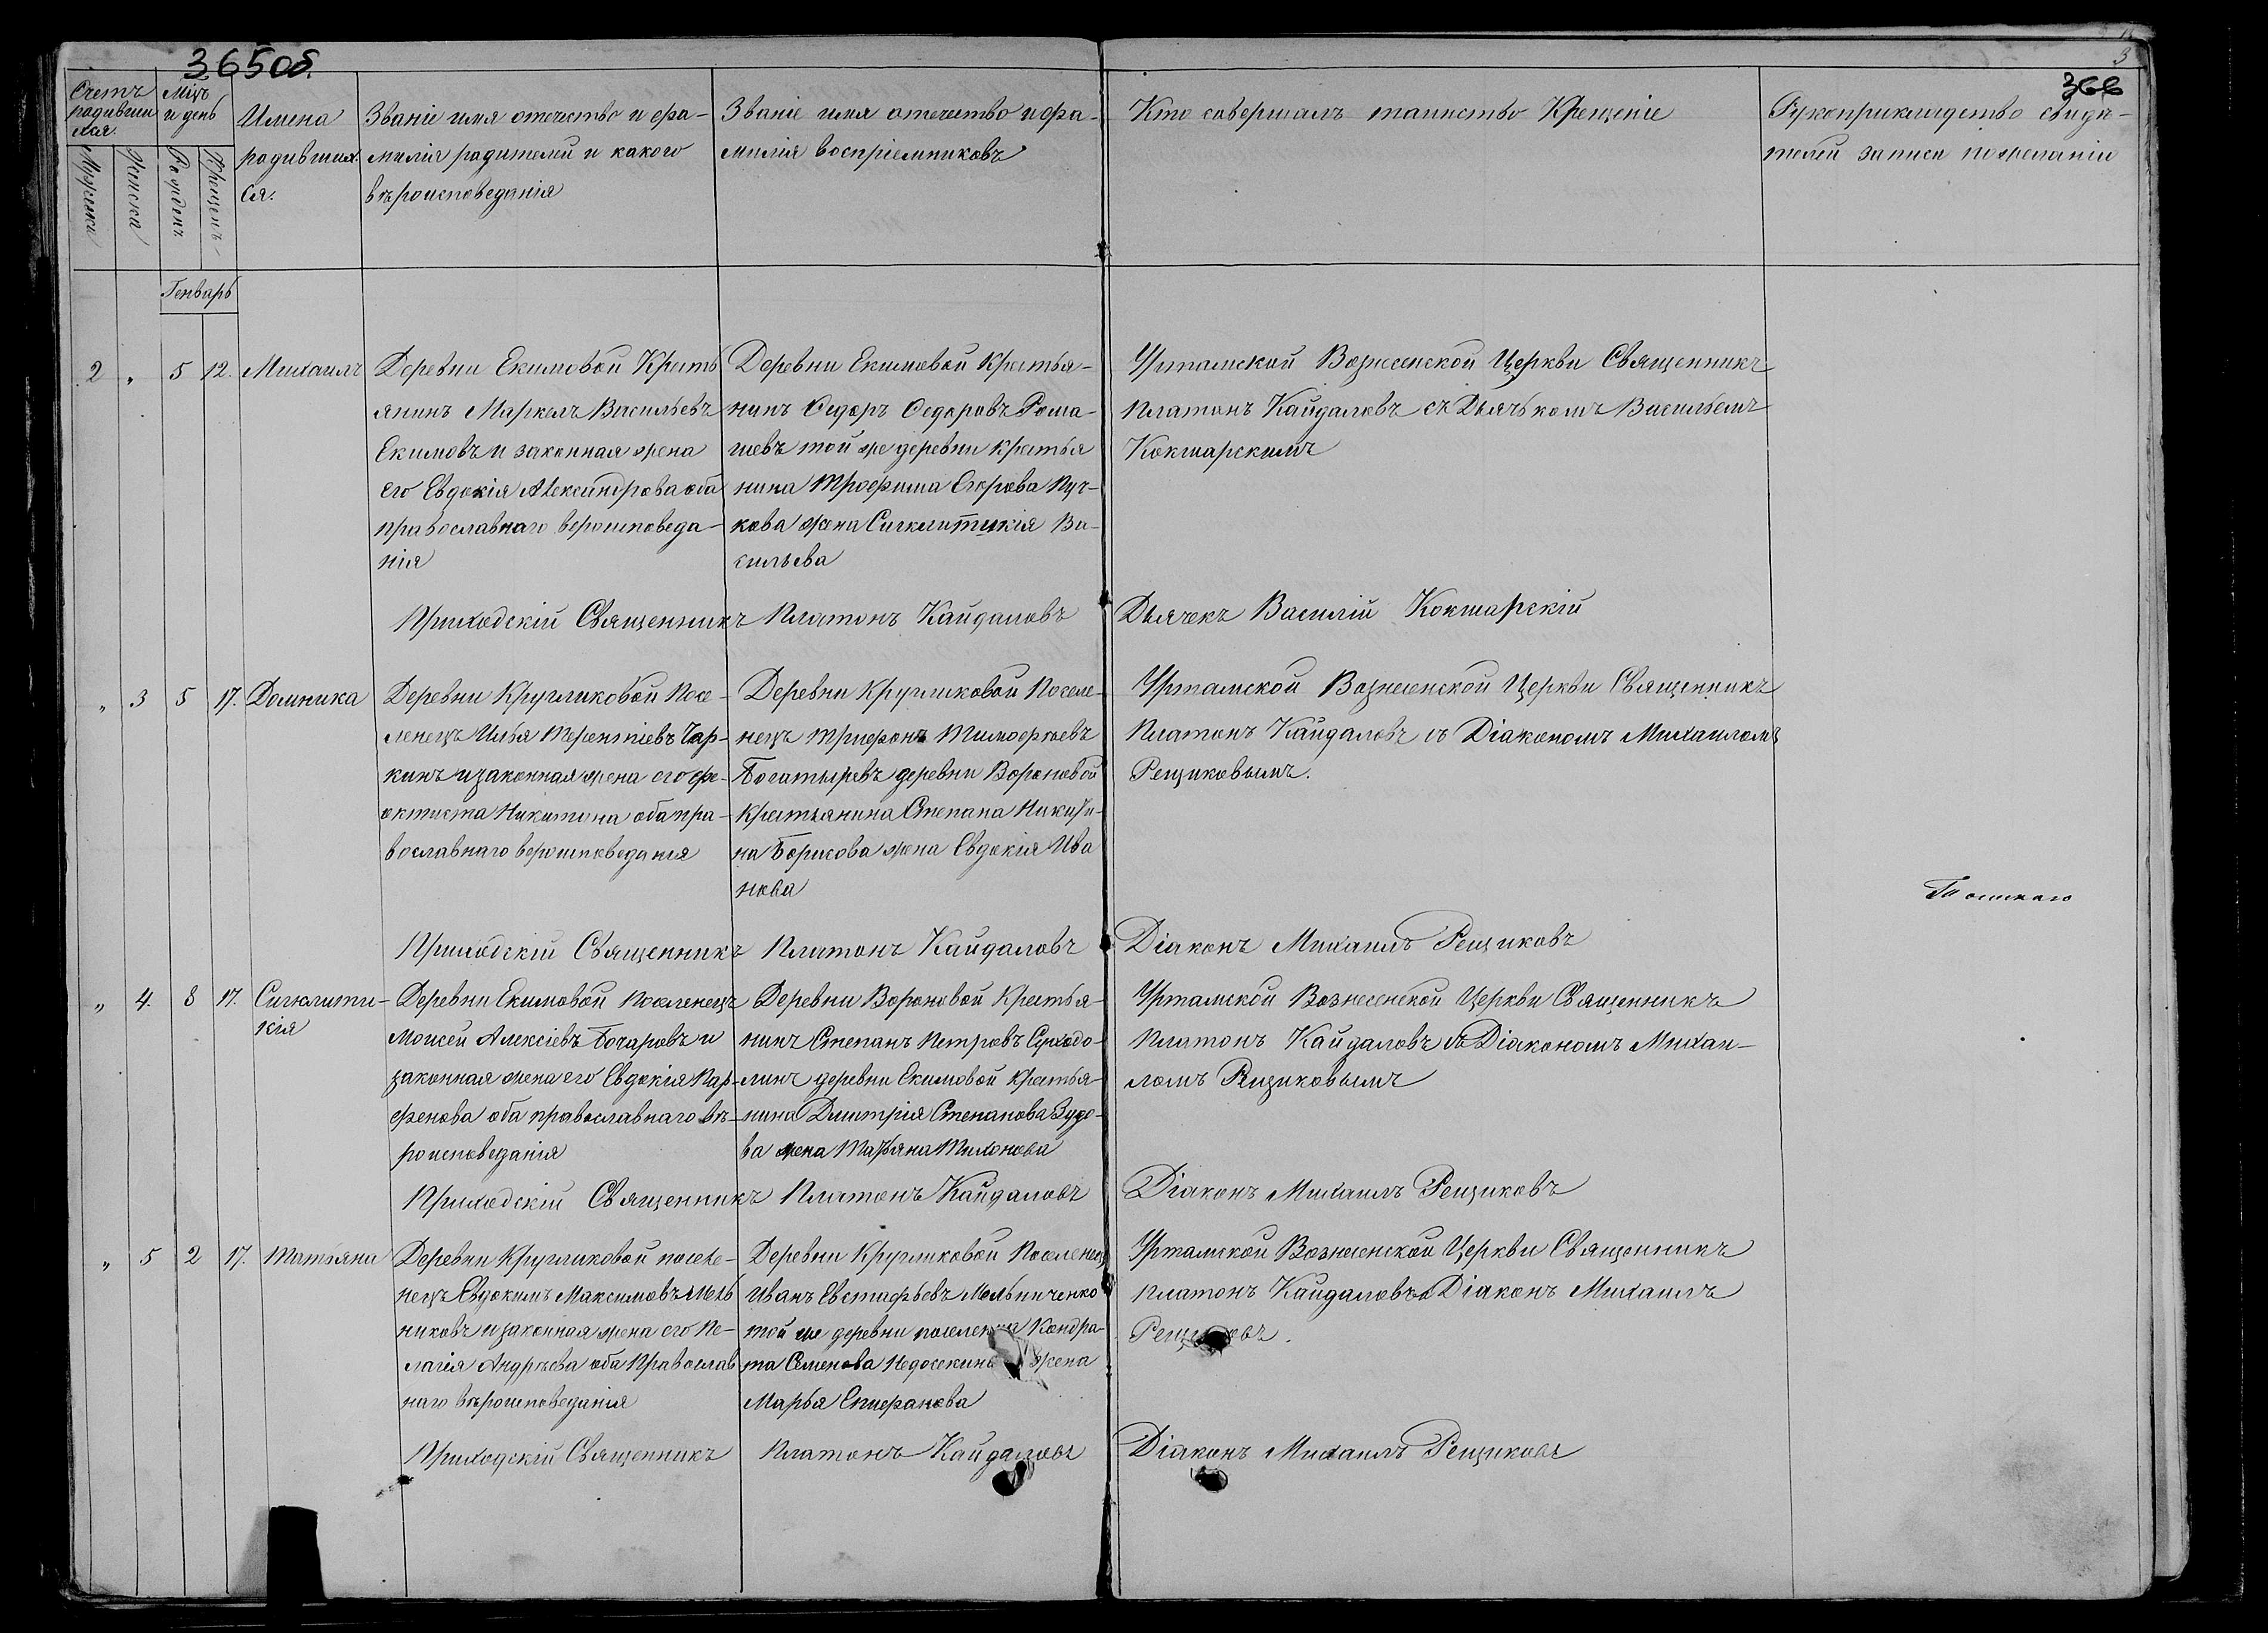 365об.
3
366
Счетъ родившихся.
Мужеска
Женска
Мцъ и день
Рожденъ
Крещенъ
Имена
родивших.
ся.
Званіе имя отечество и фа-
милія родителей и какого
вѣроисповеданія
Званіе имя отечество и фа-
милія воспріемниковъ
Кто совершалъ таинство Крещеніе
Рукоприкладство свидѣ-
телей записи по желанію
Генварь
2 „ 5 12. Михаилъ
Деревни Екимовой Кресть
янинъ Маркелъ Васильевъ
Екимовъ и законная жена
его Евдокія Александрова оба
православнаго вероисповеда-
нія
Деревни Екимовой Крестья-
нинъ Федоръ Федоровъ Рома-
шевъ той же деревни крестья
нина Трофима Егорова Пуч-
кова жена Сигклитикія Ва-
сильева
Уртамской Вознесенской Церкви Священникъ
Платонъ Кайдаловъ съ Дьячькомъ Васильемъ
Кокшарскимъ
Приходскій Священникъ Платонъ Кайдаловъ Дьячекъ Василій Кокшарскій
„ 3 5 17. Домника
Деревни Кругликовой Посе-
ленецъ Илья Терентіевъ Чар-
кинъ и законная жена его Фе-
октиста Никитина оба пра-
вославнаго вероисповеданія
Деревни Кругликовой Поселе-
нецъ Трифонъ Тимофеевъ
Богатыревъ деревни Вороновой
Крестьянина Степана Никити-
на Борисова жена Евдокія Ива
нова
Уртамской Вознесенской Церкви Священникъ
Платонъ Кайдаловъ съ Діакономъ Михаиломъ
Рещиковымъ.
Томскаго
Приходскій Священникъ Платонъ Кайдаловъ Діаконъ Михаилъ Рещиковъ
„ 4. 8 17. Сигклити-
кія
Деревни Екимовой Поселенецъ
Моисей Алексіевъ Бочаровъ и
законная жена его Евдокія Пар-
фенова оба православнаго вѣ-
роисповеданія
Деревни Вороновой Крестья-
нинъ Степанъ Петровъ Суходо-
линъ деревни Екимовой Крестья-
нина Дмитрія Степанова Зудо-
ва жена Татьяна Тихонова
Уртамской Вознесенской Церкви Священникъ
Платонъ Кайдаловъ съ Діакономъ Михаи-
ломъ Рещиковымъ
Приходскій Священникъ Платонъ Кайдаловъ Діаконъ Михаилъ Рещиковъ
„ 5 2 17. Татьяна
Деревни Кругликовой поселе-
нецъ Евдокимъ Максимовъ Мель
никовъ и законная жена его Пе-
лагія Андрѣева оба Православ
наго вѣроисповеданія
Деревни Кругликовой Поселенецъ
Иванъ Евстафьевъ Мельниченко
той же деревни поселенца Кондра-
та Семенова Недосекина жена
Марья Епифанова
Уртамской Вознесенской Церкви Священникъ
Платонъ Кайдаловъ и Діаконъ Михаилъ
Рещиковъ.
Приходскій Священникъ Платонъ Кайдаловъ Діаконъ Михаилъ Рещиковъ